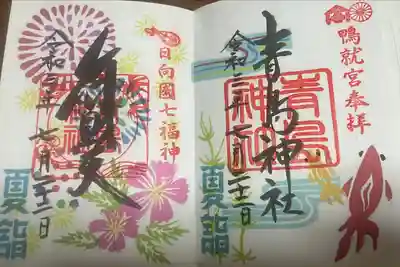 鴨就宮奉拝
青島神社
青島神社
令和三年七月二十二日
夏詣
日向國七福神
弁財天
令和三年七月二十二日
夏詣